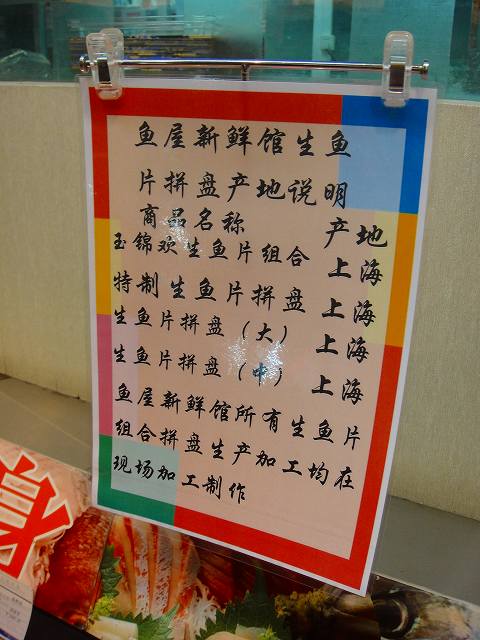 鱼屋新鲜馆生鱼
片拼盘产地说明
商品名称 产地
玉锦欢生鱼片组合 上海
特制生鱼片拼盘 上海
生鱼片拼盘（大） 上海
生鱼片拼盘（中） 上海
鱼屋新鲜馆所有生鱼片
组合拼盘生产加工均在
现场加工制作
身